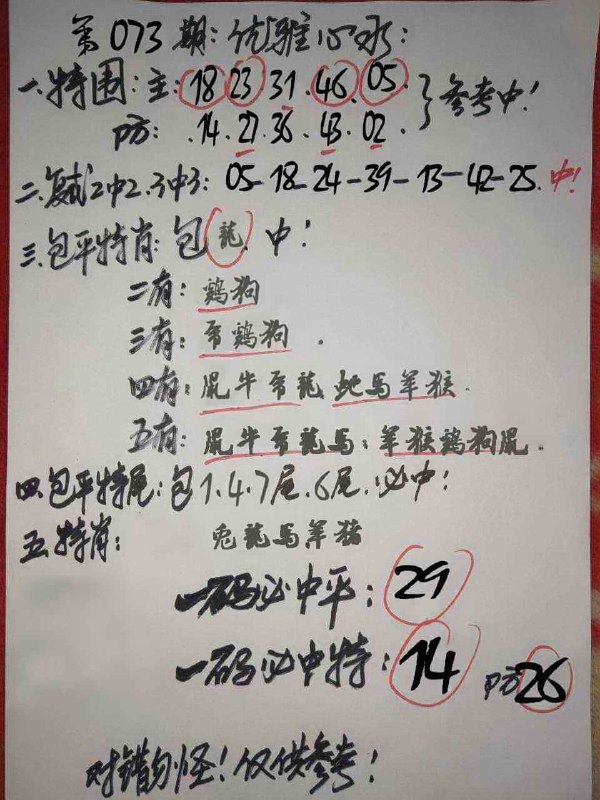 第073期:优雅心水:
一.特围:主:18 23 31.46.05.
防:.14.27.36.43.02. }参考中!
二.复式2中2.3中3: 05-18-24-39-13-42-25.中!
三.包平特肖:包龍.中!
二有:鷄狗
三有:虎鷄狗.
四有:鼠牛虎龍 蛇馬羊猴.
五有:鼠牛虎龍馬;羊猴鷄狗鼠.
四.包平特尾:包1.4.7尾.6尾.必中!
五.特肖: 兔龍馬羊猪
一码必中平:29
一码必中特:14 防26
对错勿怪!仅供参考!